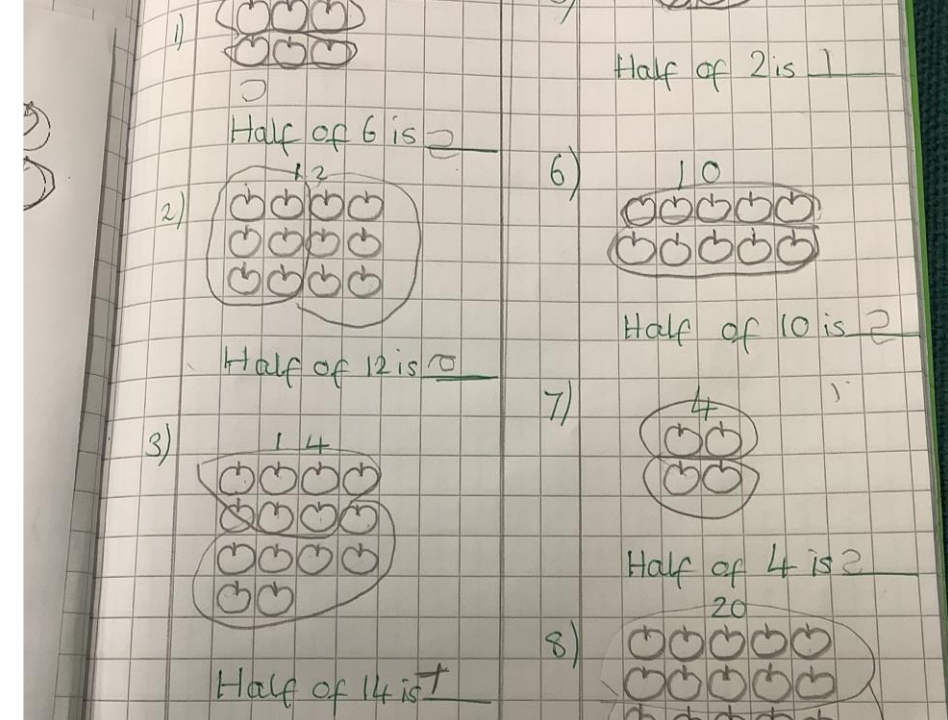 1)
Half of 6 is
12
2)
Half of 12 is
14
3)
Half of 14 is
Half of 2 is 1
6)
10
Half of 10 is
7)
4
Half of 4 is 2
20
8)